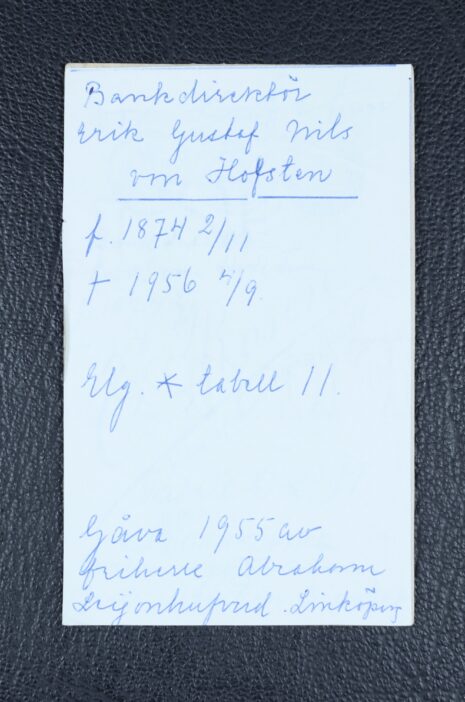 Bankdirektör
Erik Gustaf Nils
von Hofsten
f. 1874 2/11
† 1956 4/9.
Elg. * tabell 11.
Gåva 1955 av
friherre Abraham
Leijonhufvud. Linköping